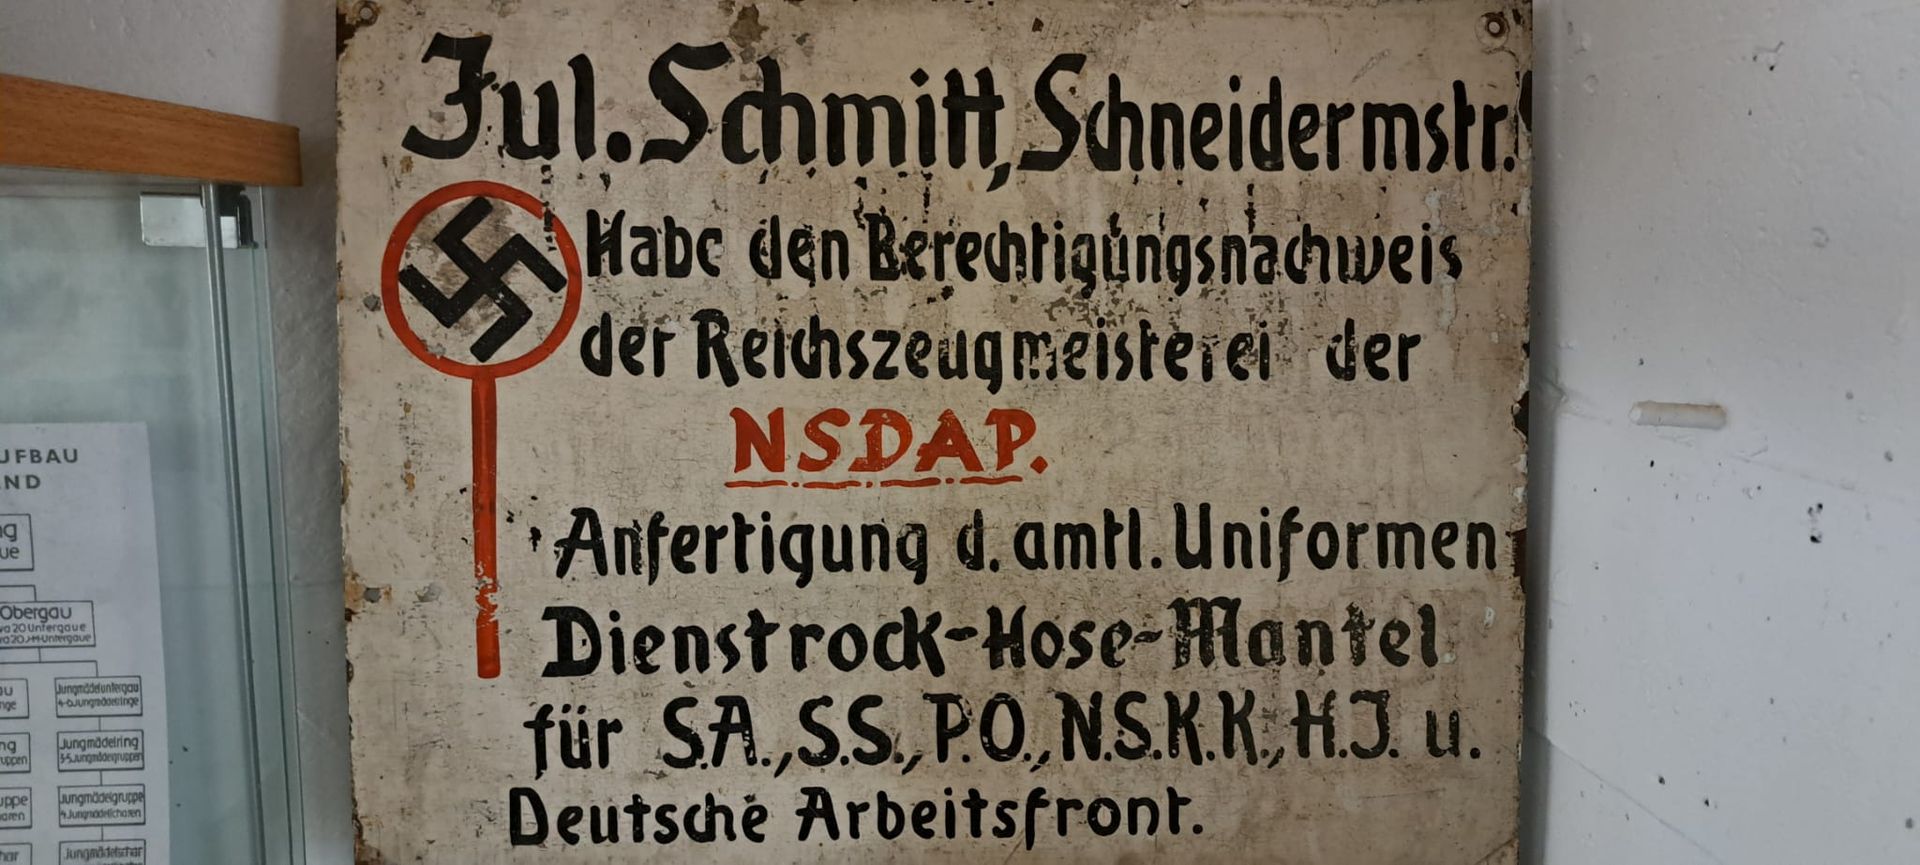 Jul. Schmitt, Schneidermstr.
Habe den Berechtigungsnachweis
der Reichszeugmeisterei der
NSDAP.
Anfertigung d. amtl. Uniformen
Dienstrock-Hose-Mantel
für S.A., S.S., P.O., N.S.K.K., H.J. u.
Deutsche Arbeitsfront.
UFBAU
ND
Obergau
Jungmädeluntergau
4-6 Jungmädelringe
Jungmädelring
3-5 Jungmädelgruppen
Jungmädelgruppe
4 Jungmädelscharen
Jungmädelschar